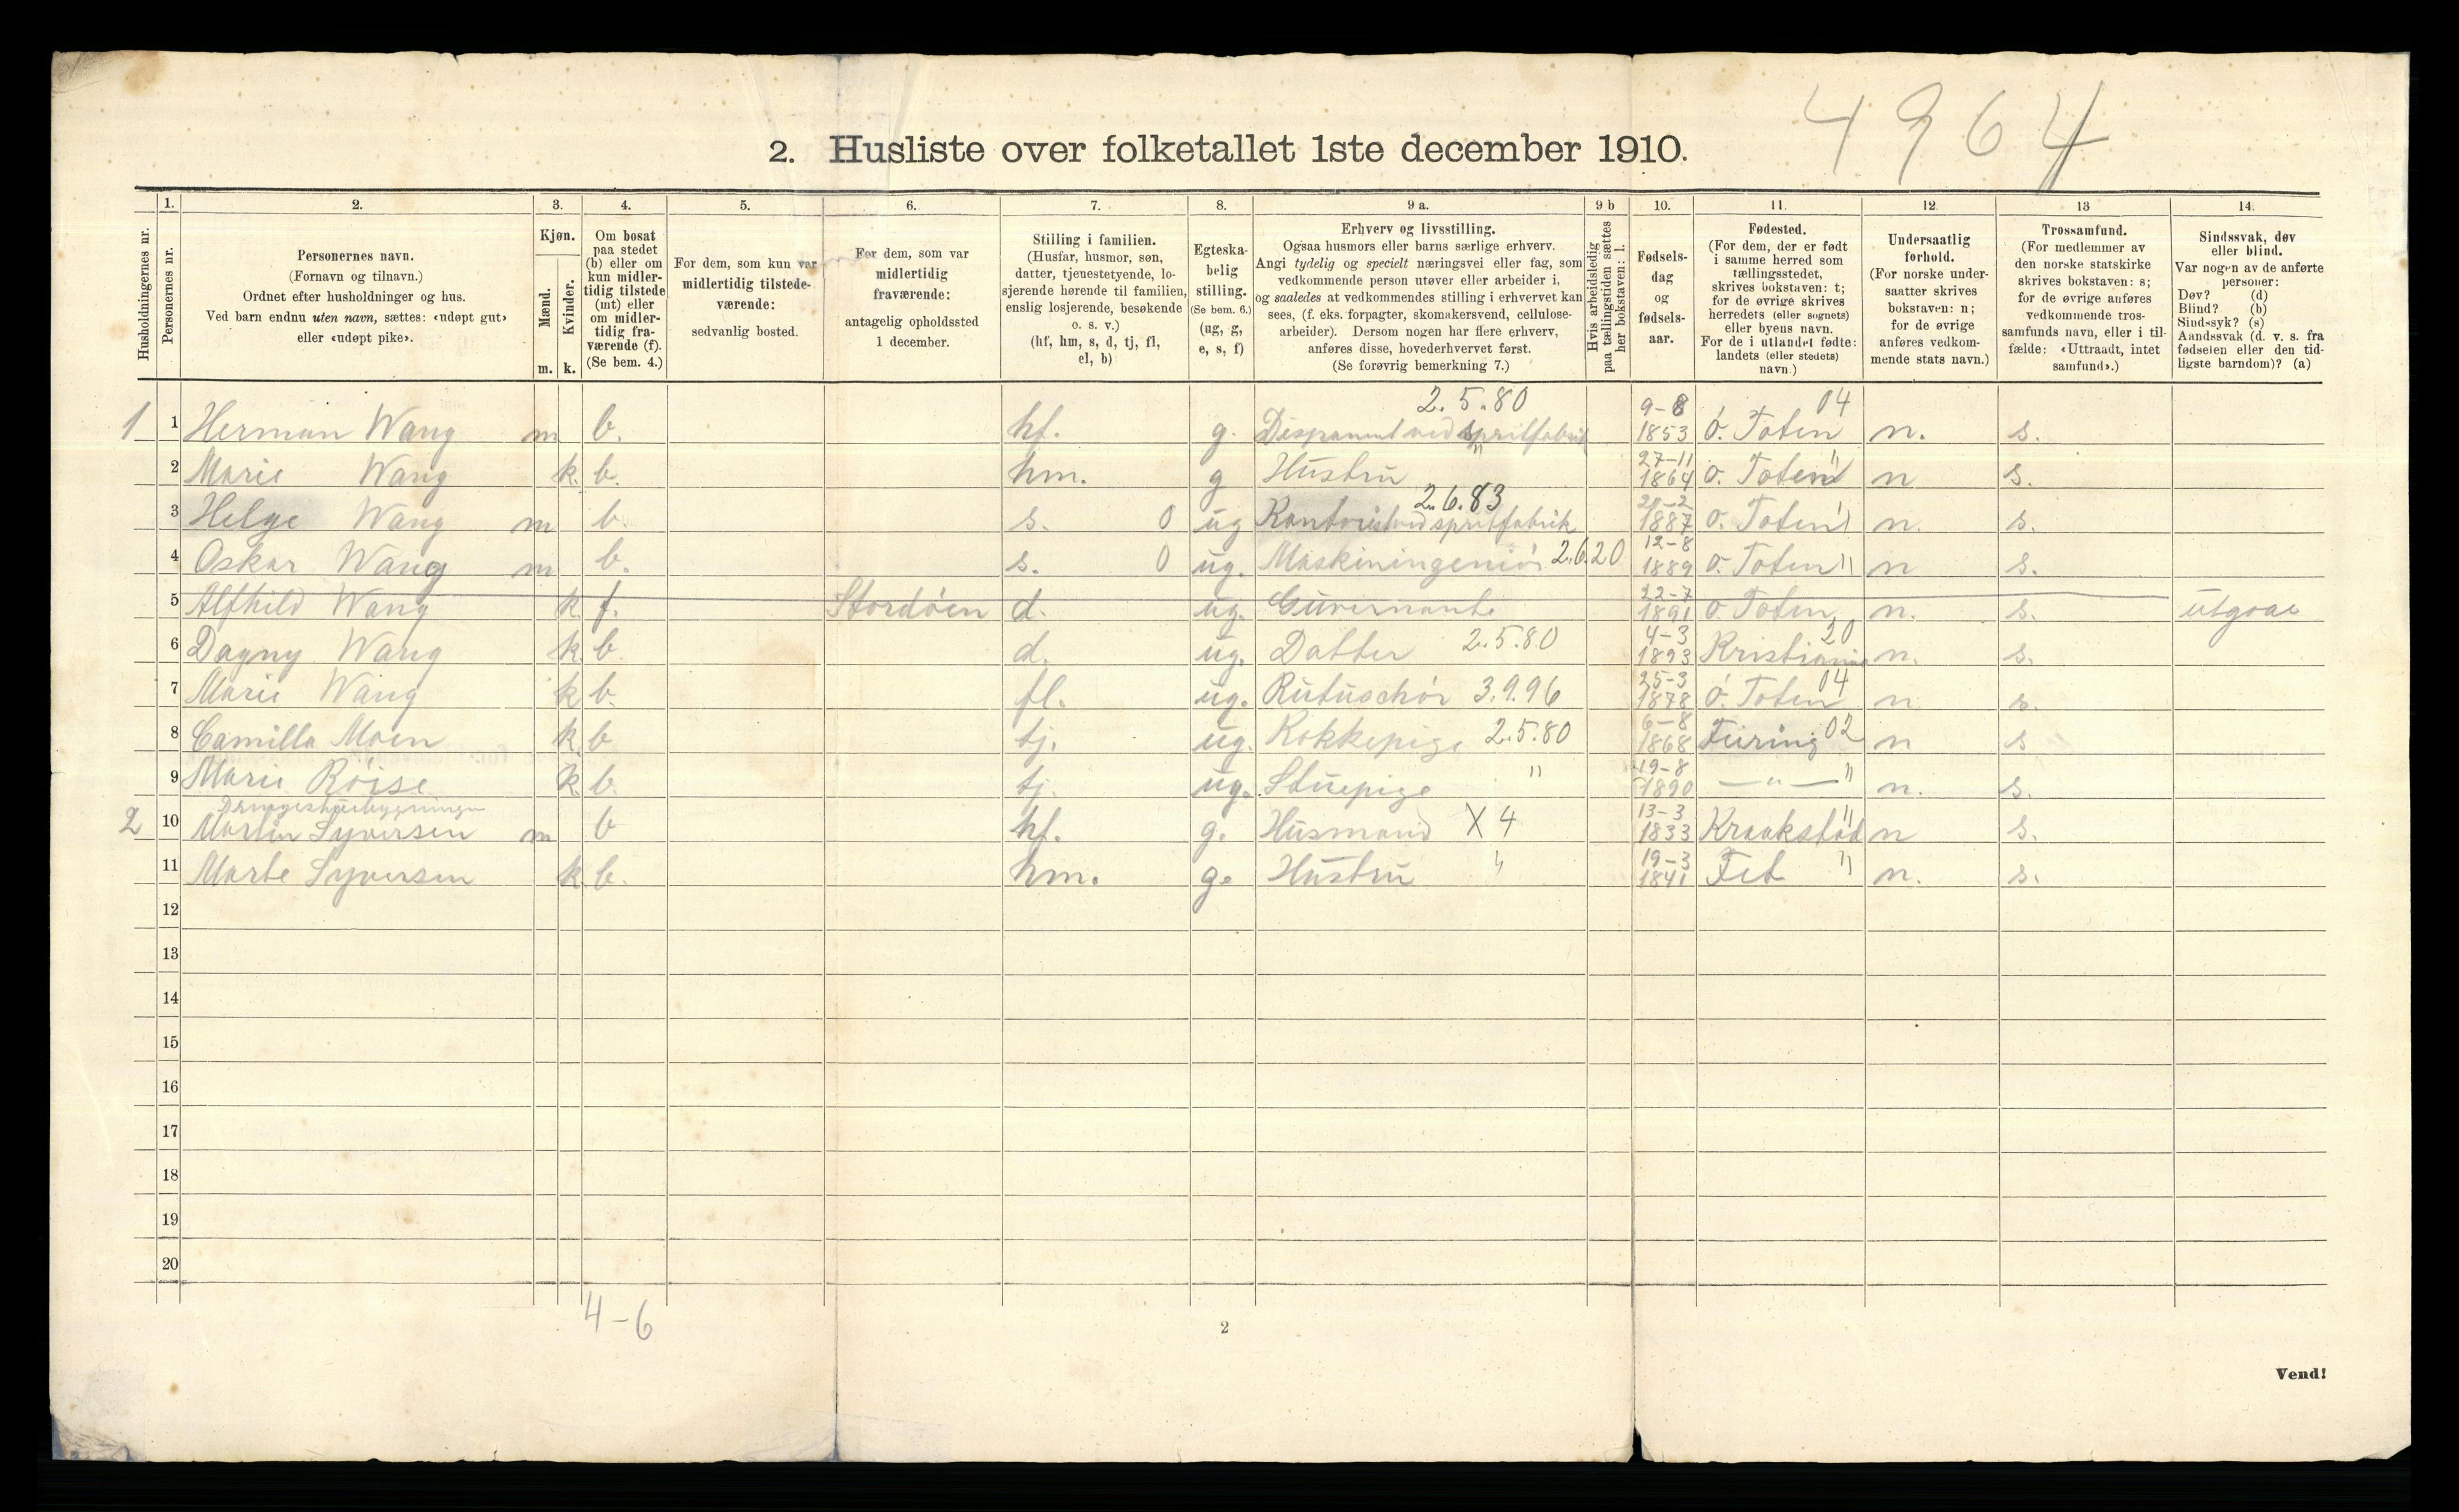 4964
2. Husliste over folketallet 1ste december 1910.
Husholdningernes nr.
1.
Personernes nr.
2.
Personernes navn.
(Fornavn og tilnavn.)
Ordnet efter husholdninger og hus.
Ved barn endnu uten navn, sættes: «udøpt gut»
eller «udøpt pike».
3.
Kjøn.
Mænd.
Kvinder.
m. k.
4.
Om bosat
paa stedet
(b) eller om
kun midler-
tidig tilstede
(mt) eller
om midler-
tidig fra-
værende (f).
(Se bem. 4.)
5.
For dem, som kun var
midlertidig tilstede-
værende:
sedvanlig bosted.
6.
For dem, som var
midlertidig
fraværende:
antagelig opholdssted
1 december.
7.
Stilling i familien.
(Husfar, husmor, søn,
datter, tjenestetyende, lo-
sjerende hørende til familien,
enslig losjerende, besøkende
o. s. v.)
(hf, hm, s, d, tj, fl,
el, b)
8.
Egteska-
belig
stilling.
(Se bem. 6.)
(ug, g,
e, s, f)
9 a.
Erhverv og livsstilling.
Ogsaa husmors eller barns særlige erhverv.
Angi tydelig og specielt næringsvei eller fag, som
vedkommende person utøver eller arbeider i,
og saaledes at vedkommendes stilling i erhvervet kan
sees, (f. eks. forpagter, skomakersvend, cellulose-
arbeider). Dersom nogen har flere erhverv,
anføres disse, hovederhvervet først.
(Se forøvrig bemerkning 7.)
9 b
Hvis arbeidsledig
paa tællingstiden sættes
her bokstaven: l.
10.
Fødsels-
dag
og
fødsels-
aar.
11.
Fødested.
(For dem, der er født
i samme herred som
tællingsstedet,
skrives bokstaven: t;
for de øvrige skrives
herredets (eller sognets)
eller byens navn.
For de i utlandet fødte:
landets (eller stedets)
navn.)
12.
Undersaatlig
forhold.
(For norske under-
saatter skrives
bokstaven: n;
for de øvrige
anføres vedkom-
mende stats navn.)
13
Trossamfund.
(For medlemmer av
den norske statskirke
skrives bokstaven: s;
for de øvrige anføres
vedkommende tros-
samfunds navn, eller i til-
fælde: «Uttraadt, intet
samfund».)
14.
Sindssvak, døv
eller blind.
Var nogen av de anførte
personer:
Døv? (d)
Blind? (b)
Sindssyk? (s)
Aandssvak (d. v. s. fra
fødselen eller den tid-
ligste barndom)? (a)
2.5.80 9-8 04
1 1 Herman Wang m b. hf. g. ved spritfabrik 1853 ø. Toten n. s.
27-11
2 Marie Wang k. b. hm. g Hustru 1864 ø. Toten " n s.
2.6.83
3 Helge Wang m b. s. 0 ug Kontorist ved spritfabrik 1887 ø. Toten " n. s.
12-8
4 Oskar Wang m b. s. 0 ug. Maskiningeniør 2.6.20 1889 ø. Toten " n s.
22-7
5 Alfhild Wang k. f. Stordøen d. ug. Guvernante 1891 ø. Toten n. s. utgaar
4-3 20
6 Dagny Wang k. b. d. ug. Datter 2.5.80 1893 Kristiania n. s.
25-3 04
7 Marie Wang k b. fl. ug. 3.9.96 1878 ø. Toten n s.
6-8
8 Camilla Moen k. b tj. ug. Kokkepige 2.5.80 1868 Feiring 02 n s
19-8
9 Marie Røise k. b. tj. ug. Stuepige " 1890 — " — " n. s.
13-3
2 10 Martin Syversen m b hf. g. Husmand X 4 1833 Kraakstad " n s.
19-3
11 Marte Syversen k b. hm. g. Hustru " 1841 Fet " n. s.
12
13
14
15
16
17
18
19
20
4-6
2
Vend!